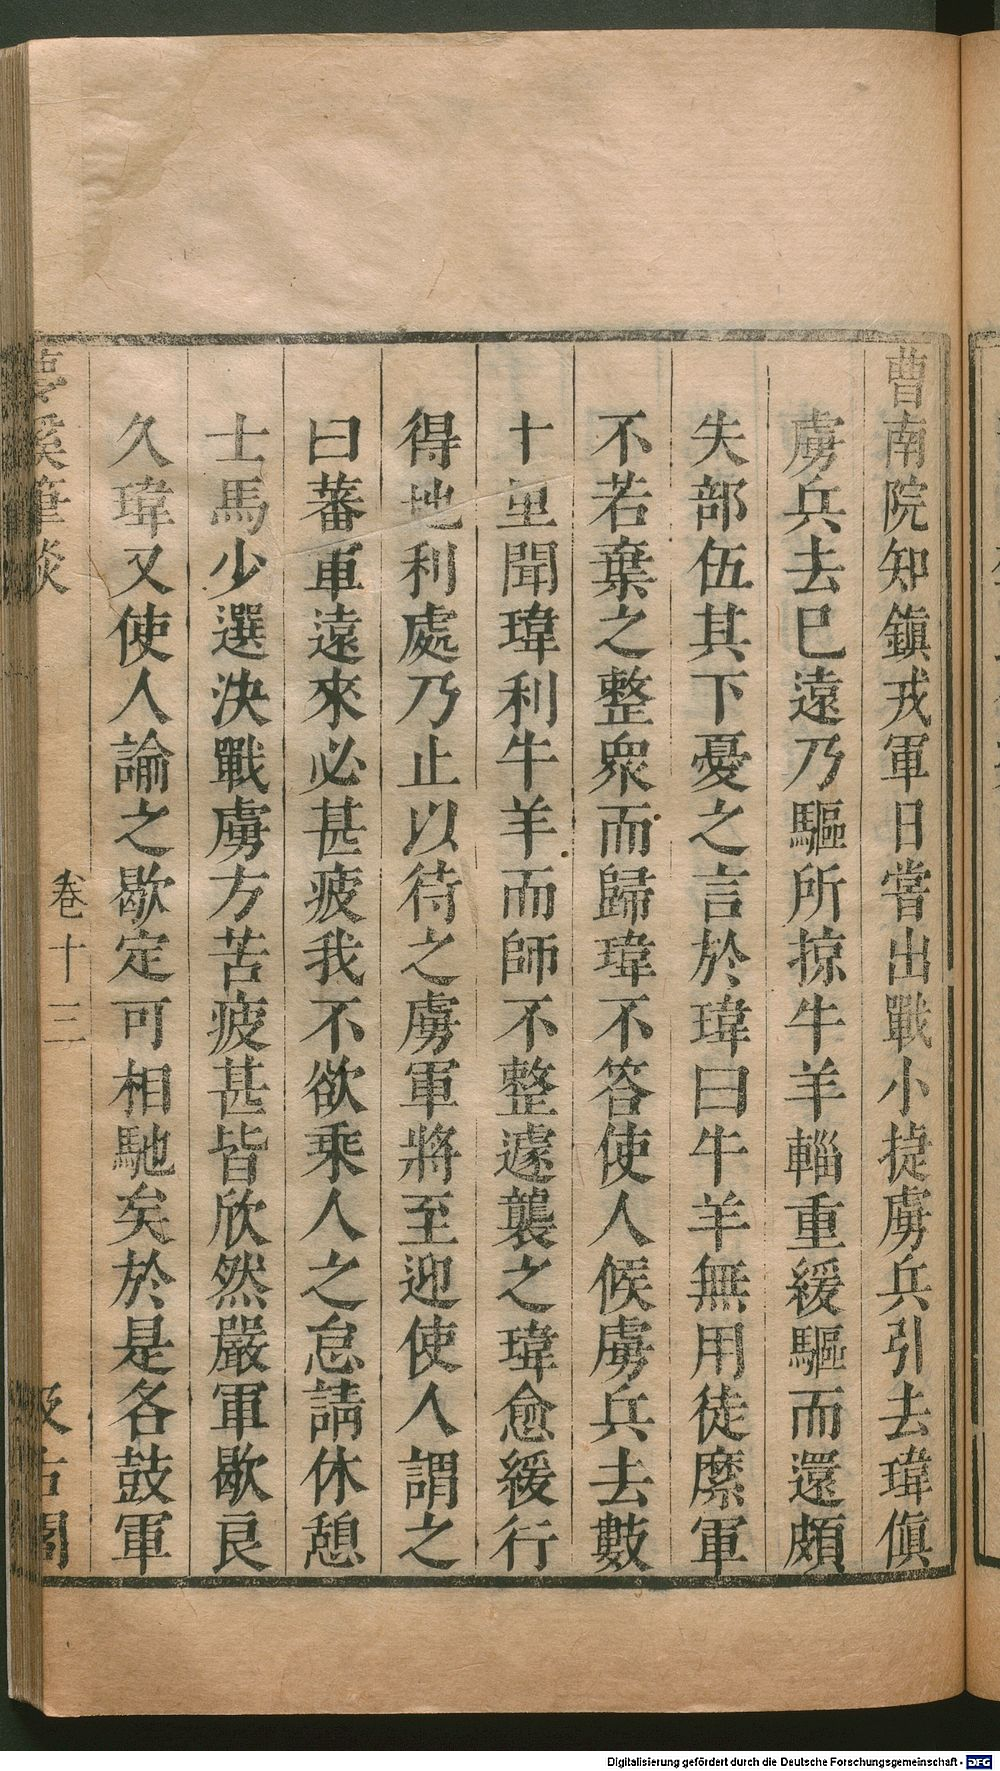 曹南院知鎮戎軍日嘗出戰小捷虜兵引去瑋偵
虜兵去巳遠乃驅所掠牛羊輜重緩驅而還頗
失部伍其下憂之言於瑋曰牛羊無用徒縻軍
不若棄之整衆而歸瑋不答使人候虜兵去數
十里聞瑋利牛羊而師不整遽襲之瑋愈緩行
得地利處乃止以待之虜軍將至迎使人謂之
曰蕃軍遠來必甚疲我不欲乘人之怠請休憩
士馬少選決戰虜方苦疲甚皆欣然嚴軍歇良
久瑋又使人諭之歇定可相馳矣於是各鼓軍
夢溪筆談 卷十三 汲古閣
Digitalisierung gefördert durch die Deutsche Forschungsgemeinschaft - DFG